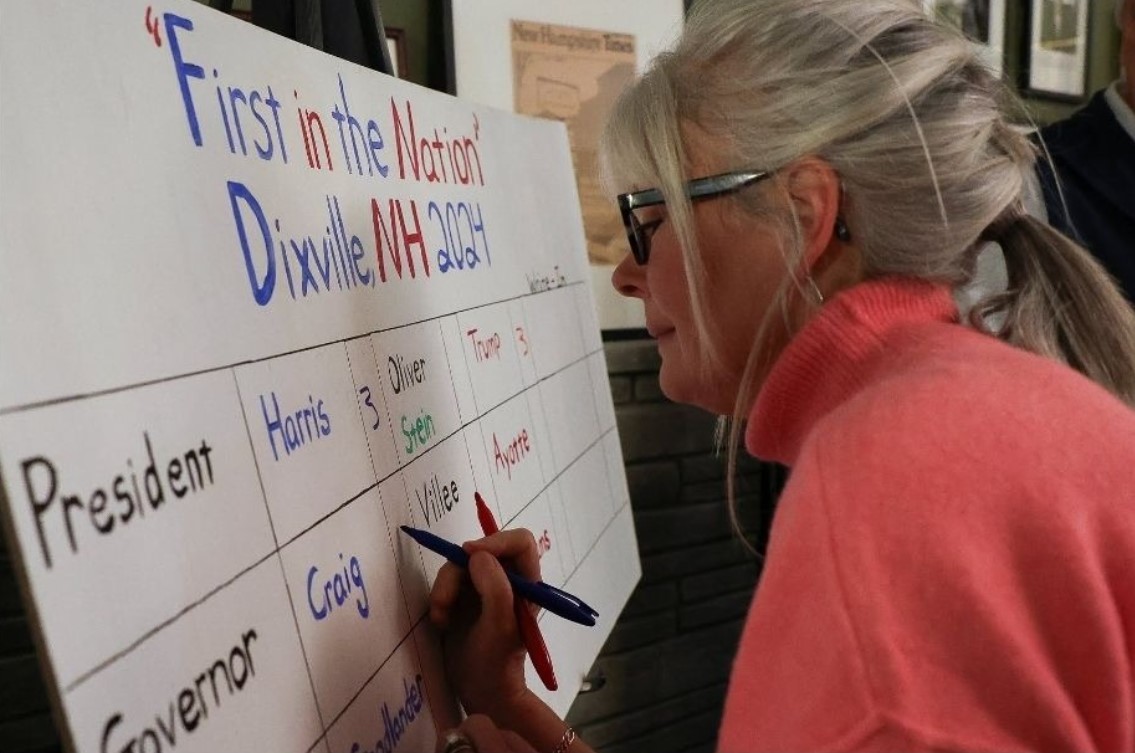 New Hampshire Times
"First in the Nation"
Dixville, NH 2024
Write-In
President Harris 3 Oliver Trump 3
Stein
Governor Craig Villee Ayotte